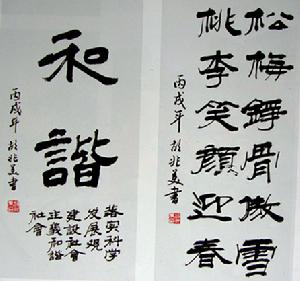 松梅錚骨傲雪
桃李笑顔迎春
丙戌年 胡兆美書
和諧
丙戌年 胡兆美書
落实科学
发展观
建設社會
主義和諧
社會